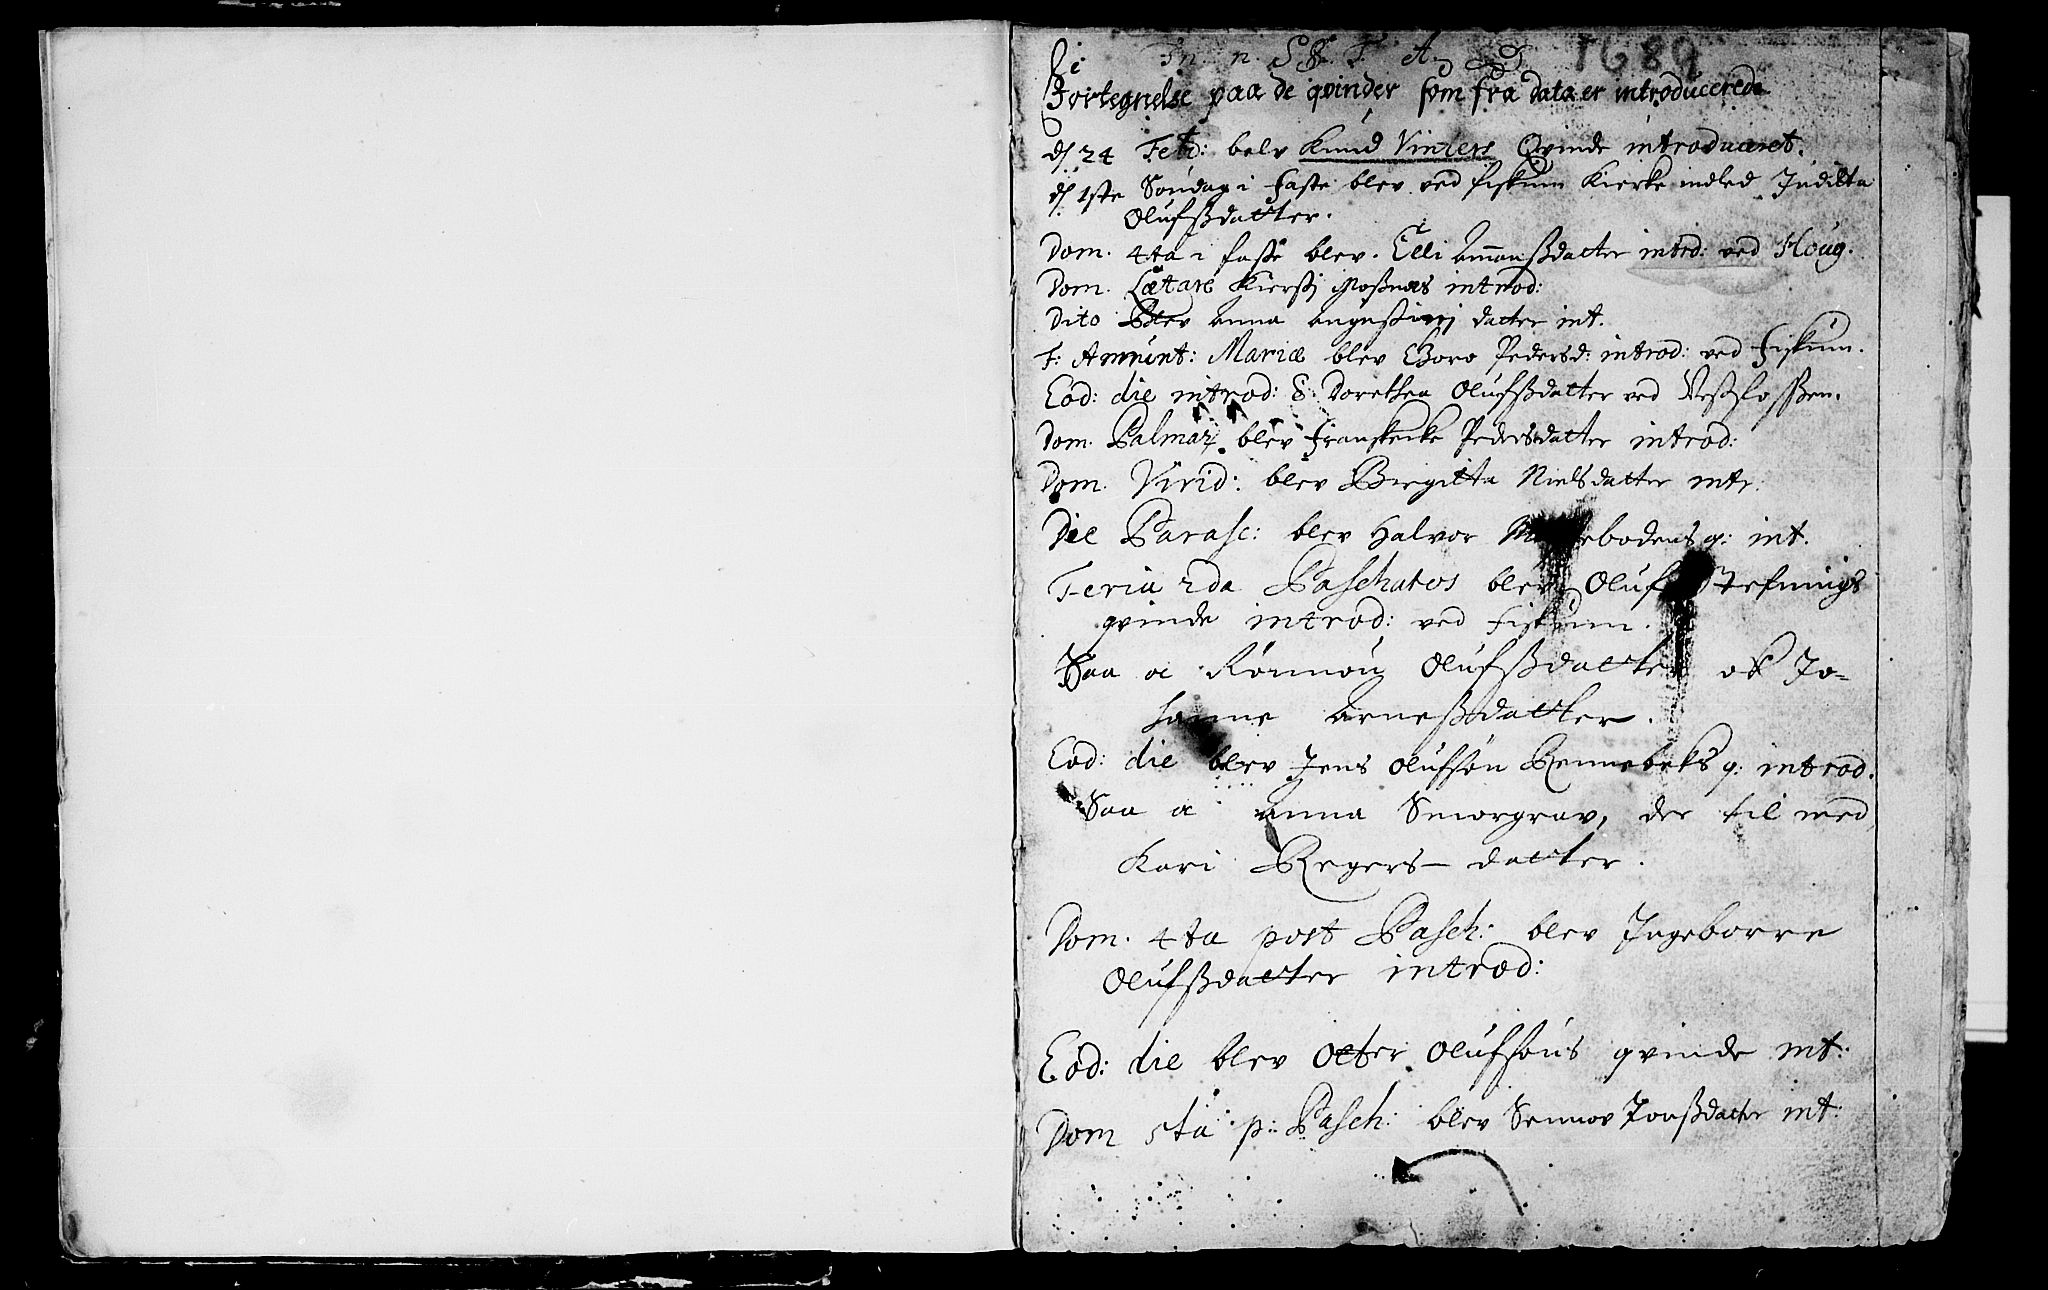 In. n. S. S. T. A. 1689
Fortegnelse paa de qvinder som fra data er introducerede
d. 24 Febr: belv Knud Vinters Qvinde introduceret.
d. 1ste Søndag i Faste blev ved fiskum Kierke indled Juditta
Olufsdatter.
Dom. 4ta i faste blev. Elli Amonsdatter introd: ved Houg.
Dom. Lætare Kiersti introd:
Dito Blev Anna datter int.
F: Annunt: Mariæ blev Boro Pedersd: introd: ved Fiskum.
Eod: die introd: S: Dorethea Olufsdatter ved
Dom. Palmar. blev Franskecke Pedersdatter introd:
Dom. Virid: blev Birgitta Nielsdatter intr:
Die Parasc: blev Halvor q: int.
Feria 2da Paschatos blev Oluf
qvinde introd: ved Fiskum.
Saa oc Rønnoug Olufsdatter ok Jo=
hanne Arnesdatter.
Eod: die blev Jens Olufsøn Rennebeks q: introd.
Saa oc Anna Smørgrav, der til med
Kari Regers- datter.
Dom. 4ta post Pasch: blev Ingeborre
Olufsdatter introd:
Eod: die blev Otter Olufsøns qvinde int:
Dom 5ta p: Pasch: blev Sennov Jonsdatter int: